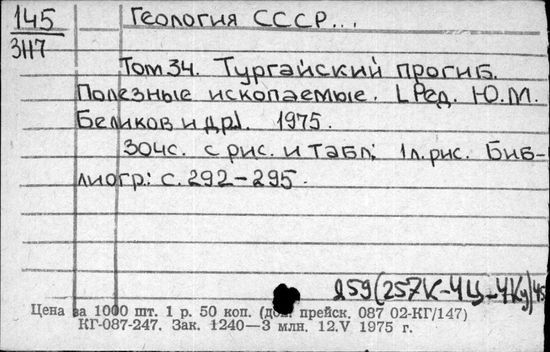 145
3117
Геология СССР...
Том 34. Тургайский прогиб.
Полезные ископаемые. [Ред. Ю.М.
Беликов и др]. 1975.
304с. с рис. и табл; 1 л. рис. Биб-
лиогр.: с. 292-295.
259(257К-4Ц-4Ку)45
Цена за 1000 шт. 1 р. 50 коп. (доп. прейск. 087 02-КГ/147)
КГ-087-247. Зак. 1240—3 млн. 12.V 1975 г.